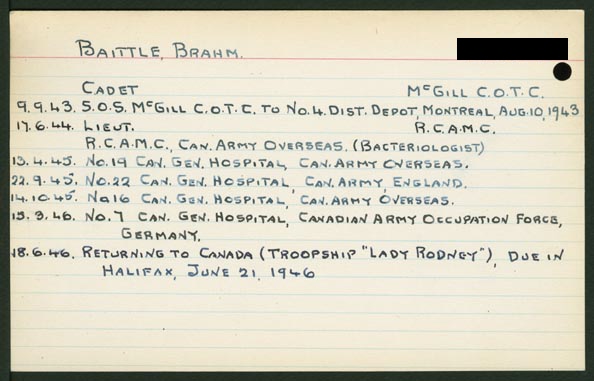 BAITTLE, BRAHM.
CADET McGILL C.O.T.C.
9.9.43. S.O.S. McGILL C.O.T.C. TO No.4. DIST. DEPOT, MONTREAL, AUG.10,1943
17.6.44. LIEUT. R.C.A.M.C.
R.C.A.M.C., CAN. ARMY OVERSEAS. (BACTERIOLOGIST)
13.4.45. No.19 CAN. GEN. HOSPITAL, CAN. ARMY OVERSEAS.
22.9.45. No.22 CAN. GEN. HOSPITAL, CAN. ARMY, ENGLAND.
14.10.45. No16 CAN. GEN. HOSPITAL, CAN. ARMY OVERSEAS.
15.3.46. No.7 CAN. GEN. HOSPITAL, CANADIAN ARMY OCCUPATION FORCE,
GERMANY.
18.6.46. RETURNING TO CANADA (TROOPSHIP "LADY RODNEY"), DUE IN
HALIFAX, JUNE 21, 1946